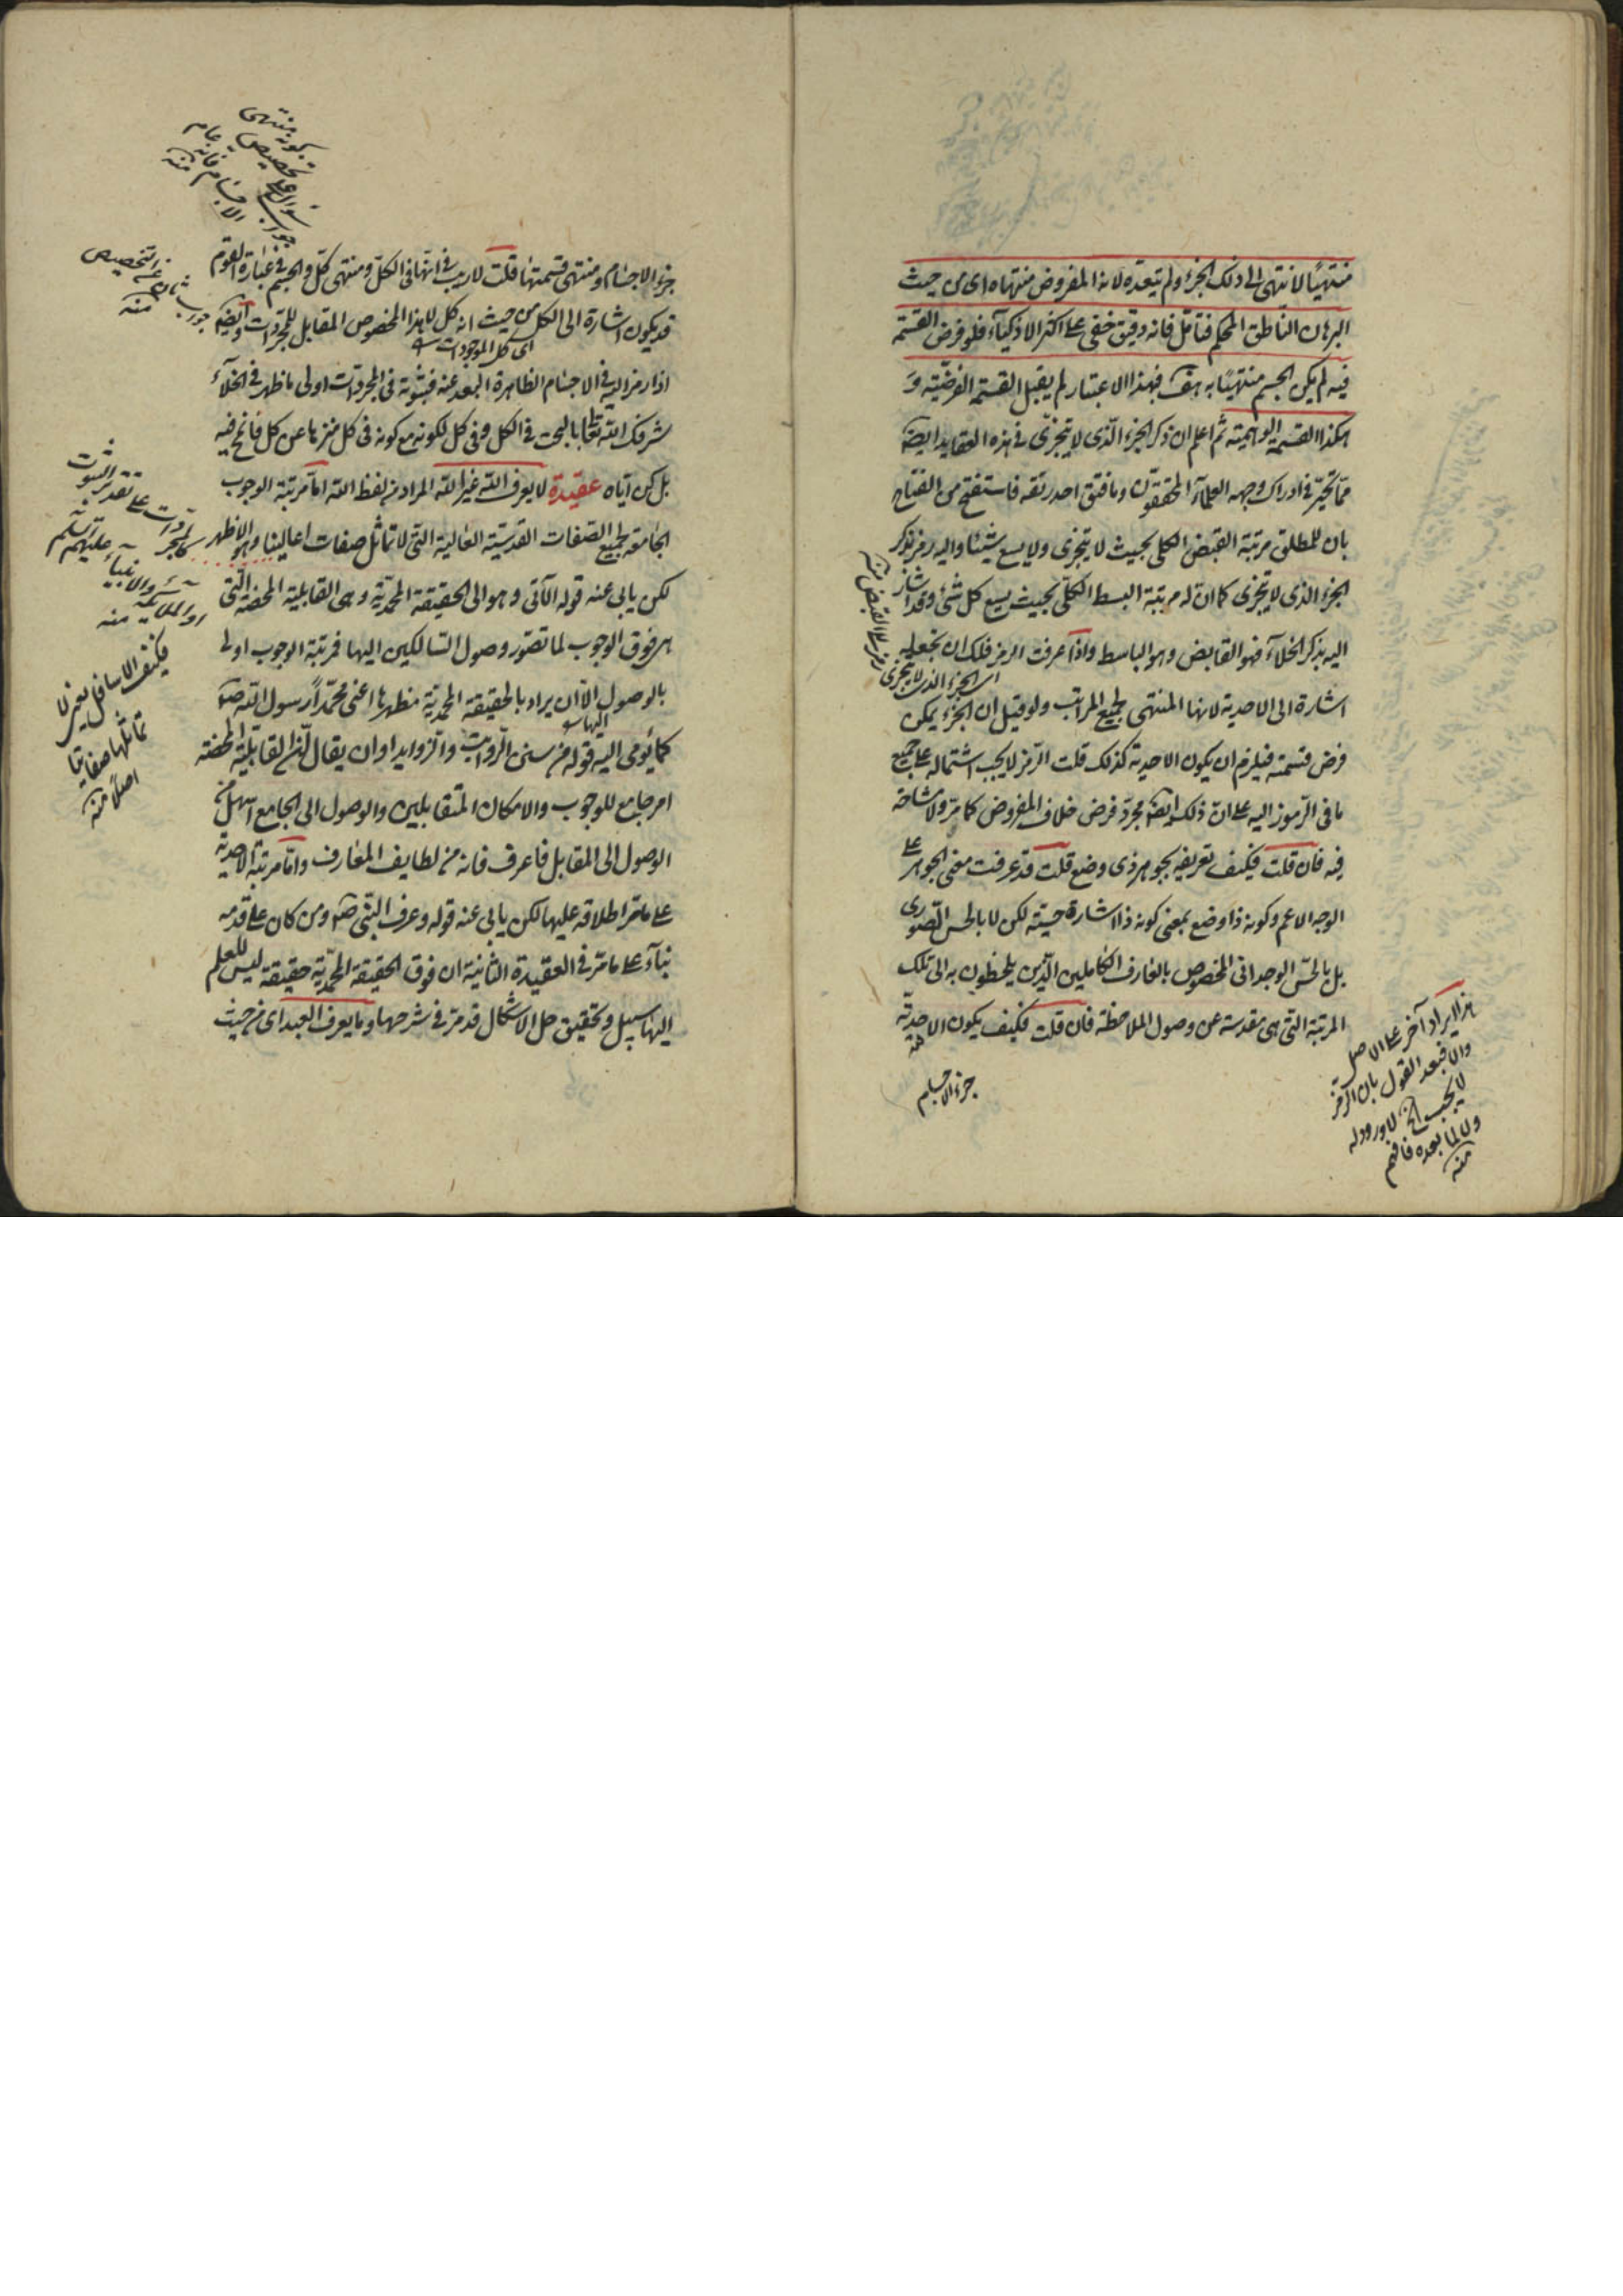 منتهيًا لانتهى الى ذلك الجزء ولم يتعدّه لانه المفروض منتهاه اى من حيث
البرهان الناطق المحكم فتأمّل فانه دقيق خفى على اكثر الاذكيآء فلو فرض القسمة
فيه لم يكن الجسم منتهيًا به هف فبهذا الاعتبار لم يقبل القسمة الفرضيّة و
هكذا القسمة الوهميّة ثم اعلم ان ذكر الجزء الّذى لا يتجزّى فى هذه العقايد ايضًا
ممّا تحيّر فى ادراك وجهه العلمآء المحققون وما فتق احد رتقه فاستفتح من الفتاح
بان للمطلق مرتبة القبض الكلى بحيث لا يتجزى ولا يسع شيئا واليه رمز بذكر
الجزء الذى لا يتجزى كما ان له مرتبة البسط الكلّى بحيث يسع كل شئ وقد اشار
اليه بذكر الخلآء فهو القابض وهو الباسط واذا عرفت الرمز فلك ان تجعله
اى الجزء الذى لا يتجزى
اشارة الى الاحدية لانها المنتهى لجميع المراتب ولو قيل ان الجزء يمكن
فرض قسمته فيلزم ان يكون الاحدية كذلك قلت الرّمز لا يجب اشتماله على جميع
ما فى الرّموز اليه على انّ ذلك ايضًا مجرّد فرض خلاف المفروض كما مرّ ولا مشاحة
فيه فان قلت فكيف تعريفه بجوهر ذى وضع قلت قد عرفت معنى الجوهر على
الوجه الاعم وكونه ذا وضع بمعنى كونه ذا اشارة حسيّة لكن لا بالحس الصّورى
بل بالحسّ الوجدانى المخصوص بالعارف الكاملين الذّين يلحظون به الى تلك
المرتبة التى هى مقدسة عن وصول الملاحظة فان قلت فكيف يكون الاحديّة
جزء الاجسام
هذا ايراد آخر على الاصل
والا فبعد القول بان الرّمز
لا يجب الخ لا ورود له
ولا لما بعده فافهم
منه
جزء الاجسام ومنتهى قسمتها قلت لا ريب فى انها فى الكلّ ومنتهى كلّ والجسم فى عبارة القوم
قد يكون اشارة الى الكل من حيث انه كل لا هذا المخصوص المقابل للمجرّدات وايضًا
اى كل الموجودات
اذا رمز اليه فى الاجسام الظاهرة البعد عنه فثبوته فى المجرّدات اولى ما ظهر فى الخلآء
شرفك الله تعالى بالبحت فى الكل وفى كل لكونه مع كونه فى كل منزها عن كل فانمح فيه
بل كن اياه عقيدة لا يعرف الله غير الله المراد من لفظ الله امّا مرتبة الوجوب
الجامعة لجميع الصّفات القدسيّة العالية التى لا تماثل صفات اعالينا وهو الاظهر
لكن يابى عنه قوله الآتى وهو الى الحقيقة المحمديّة وهى القابلية المحضة التّى
هى فوق الوجوب لما تصوّر وصول السّالكين اليها فمرتبة الوجوب اولى
بالوصول الّا ان يراد بالحقيقة المحمديّة مظهرها اعنى محمّدًا رسول الله صلم
كما يُومى اليه قوله من سنن الرّواتب والزوايد او ان يقال انّ القابليّة المحضة
امر جامع للوجوب والامكان المتقابلين والوصول الى الجامع اسهل من
الوصول الى المقابل فاعرف فانه من لطايف المعارف وامّا مرتبة الاحديّة
على ما مرّ اطلاقه عليها لكن يابى عنه قوله وعرف النبّى صلم ومن كان على قدمه
بنآء على ما مرّ فى العقيدة الثانية ان فوق الحقيقة المحمّديّة حقيقة ليس للعلم
اليها سبيل وتحقيق حل الاشكال قد مرّ فى شرحها وما يعرف العبد اى من حيث
جواب ثان عن التخصيص
منه
كالمجردات على تقدير الثبوت
او الملائكة والانبيآء عليهم السّلم
منه
فكيف الاسافل يعنى لا
تماثلها صفاتنا
اصلًا منه